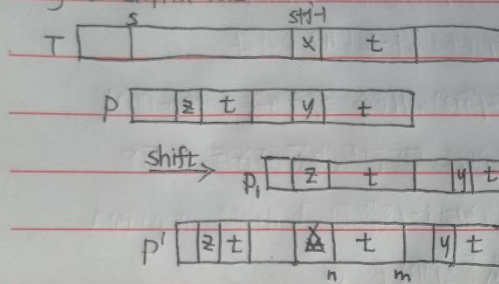 s s+j-1
T x t
P z t y t
shift
P₁ z t y t
P' z t t y t
n m